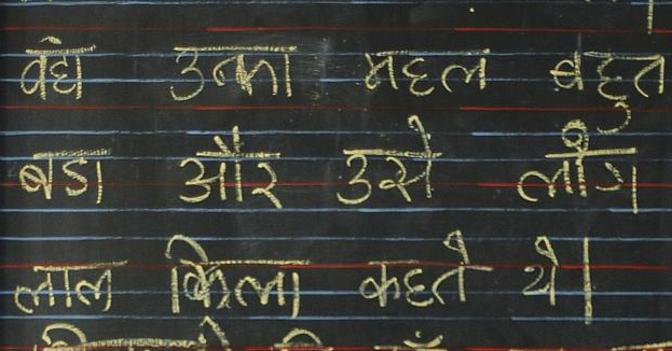 वहाँ उनका महल बहुत
बडा और उसे लोग
लाल किला कहते थे।